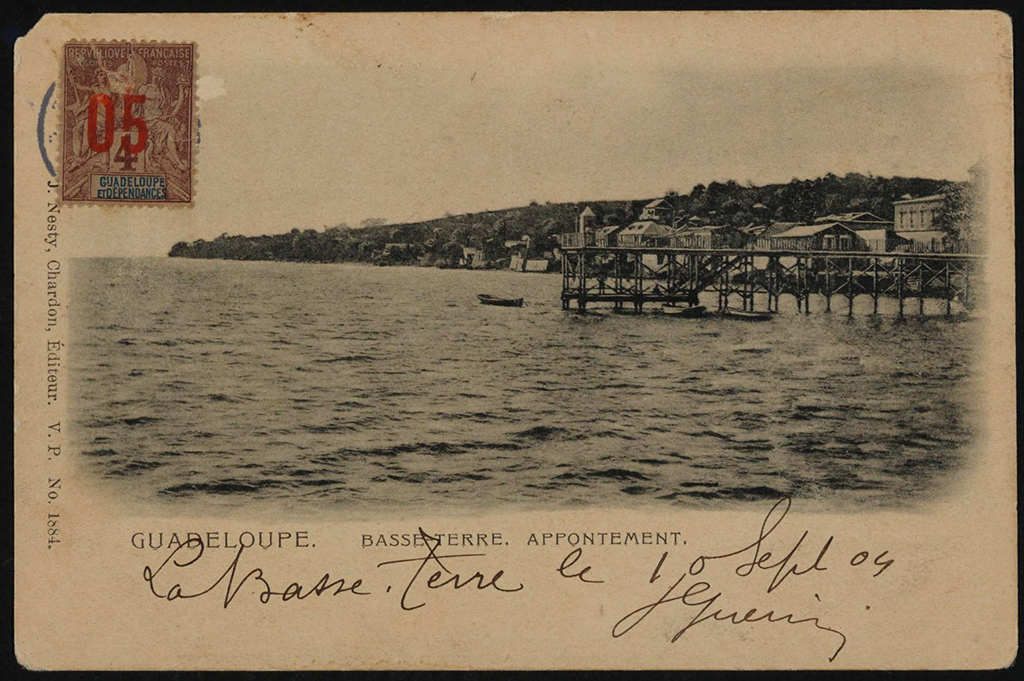 REPUBLIQUE FRANÇAISE
COLONIES POSTES
05
4
GUADELOUPE
ET DÉPENDANCES
J. Nesty, Chardon, Éditeur. V. P. No. 1884.
GUADELOUPE. BASSE-TERRE. APPONTEMENT.
La Basse-Terre le 10 Sept 04
JGuerin